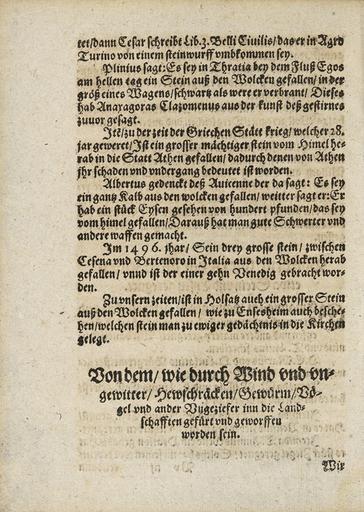 tet/dann Cesar schreibt Lib. 3. Belli Ciuilis/das er in Agro
Turino von einem steinwurff vmbkommen sey.
Plinius sagt: Es sey in Thratia bey dem Fluß Egos
am hellen tag ein Stein auß den Wolcken gefallen/in der
größ eines Wagens/schwartz als were er verbrant/ Dieses
hab Anaxagoras Clazomenus aus der kunst deß gestirnes
zuuor gesagt.
Itē/zu der zeit der Griechen Stätt krieg/welcher 28.
jar geweret/Ist ein grosser mächtiger stein vom Himel he-
rab in die Statt Athen gefallen/dadurch denen von Athen
jhr schaden vnd vndergang bedeutet ist worden.
Albertus gedenckt deß Auicenne der da sagt: Es sey
ein gantz Kalb aus den wolcken gefallen/weitter sagt er: Er
hab ein stück Eysen gesehen von hundert pfunden/das sey
vom himel gefallen/Darauß hat man gute Schwerter vnd
andere waffen gemacht.
Im 1496. jhar/ Sein drey grosse stein/ zwischen
Cesena vnd Bertenoro in Italia aus den Wolcken herab
gefallen/ vnnd ist der einer gehn Venedig gebracht wor-
den.
Zu vnsern zeiten/ist in Holsatz auch ein grosser Stein
auß den Wolcken gefallen/ wie zu Ensesheim auch besche-
hen/welchen stein man zu ewiger gedächtnis in die Kirchen
gelegt.
Von dem/ wie durch Wind vnd vn-
gewitter/ Hewschräcken/Gewürm/Vö-
gel vnd ander Vngeziefer inn die Land-
schafften gefürt vnd geworffen
worden sein.
Wir